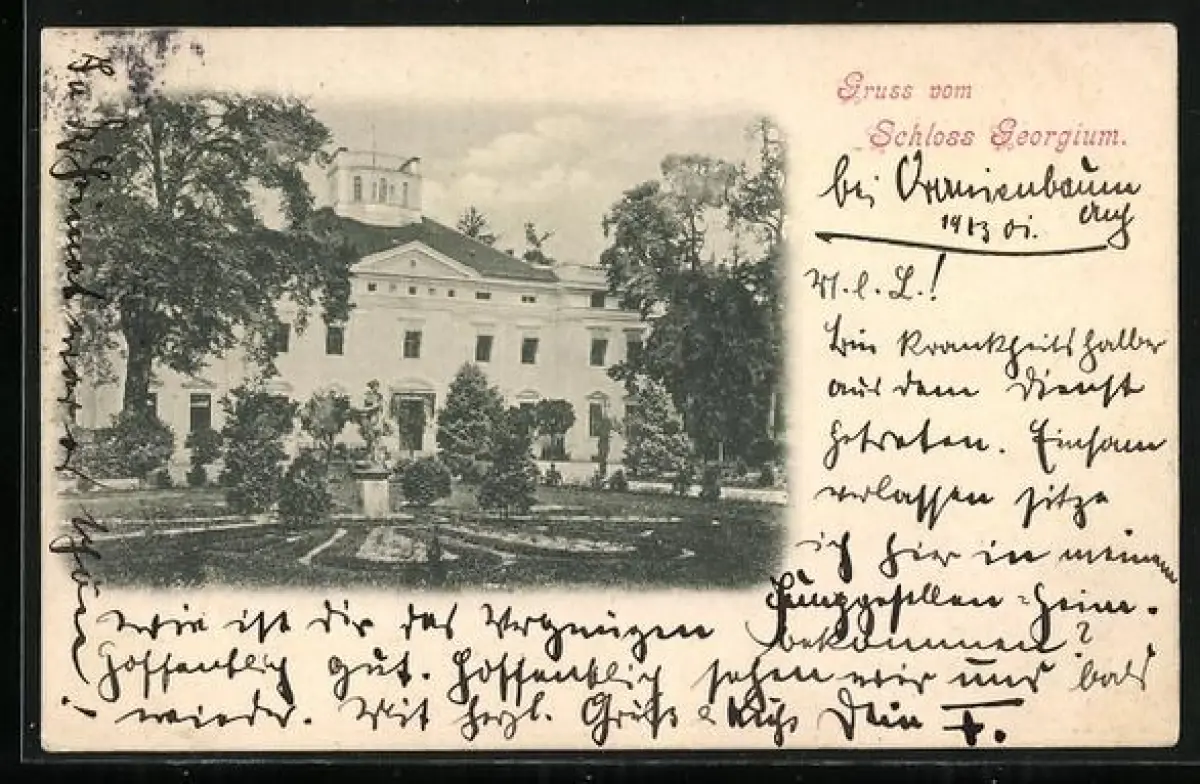 Gruss vom
Schloss Georgium.
bei Oranienbaum
M. l. L.!
Bin Krankheitshalber
aus dem Dienst
getreten. Einsam
verlassen sitze
ich hier in meinem
Junggesellen-heim.
Wie ist dir das Vergnügen
bekommen?
Hoffentlich gut. Hoffentlich sehen wir uns bald
wieder. Mit herzl. Gruß & Kuß Dein F.